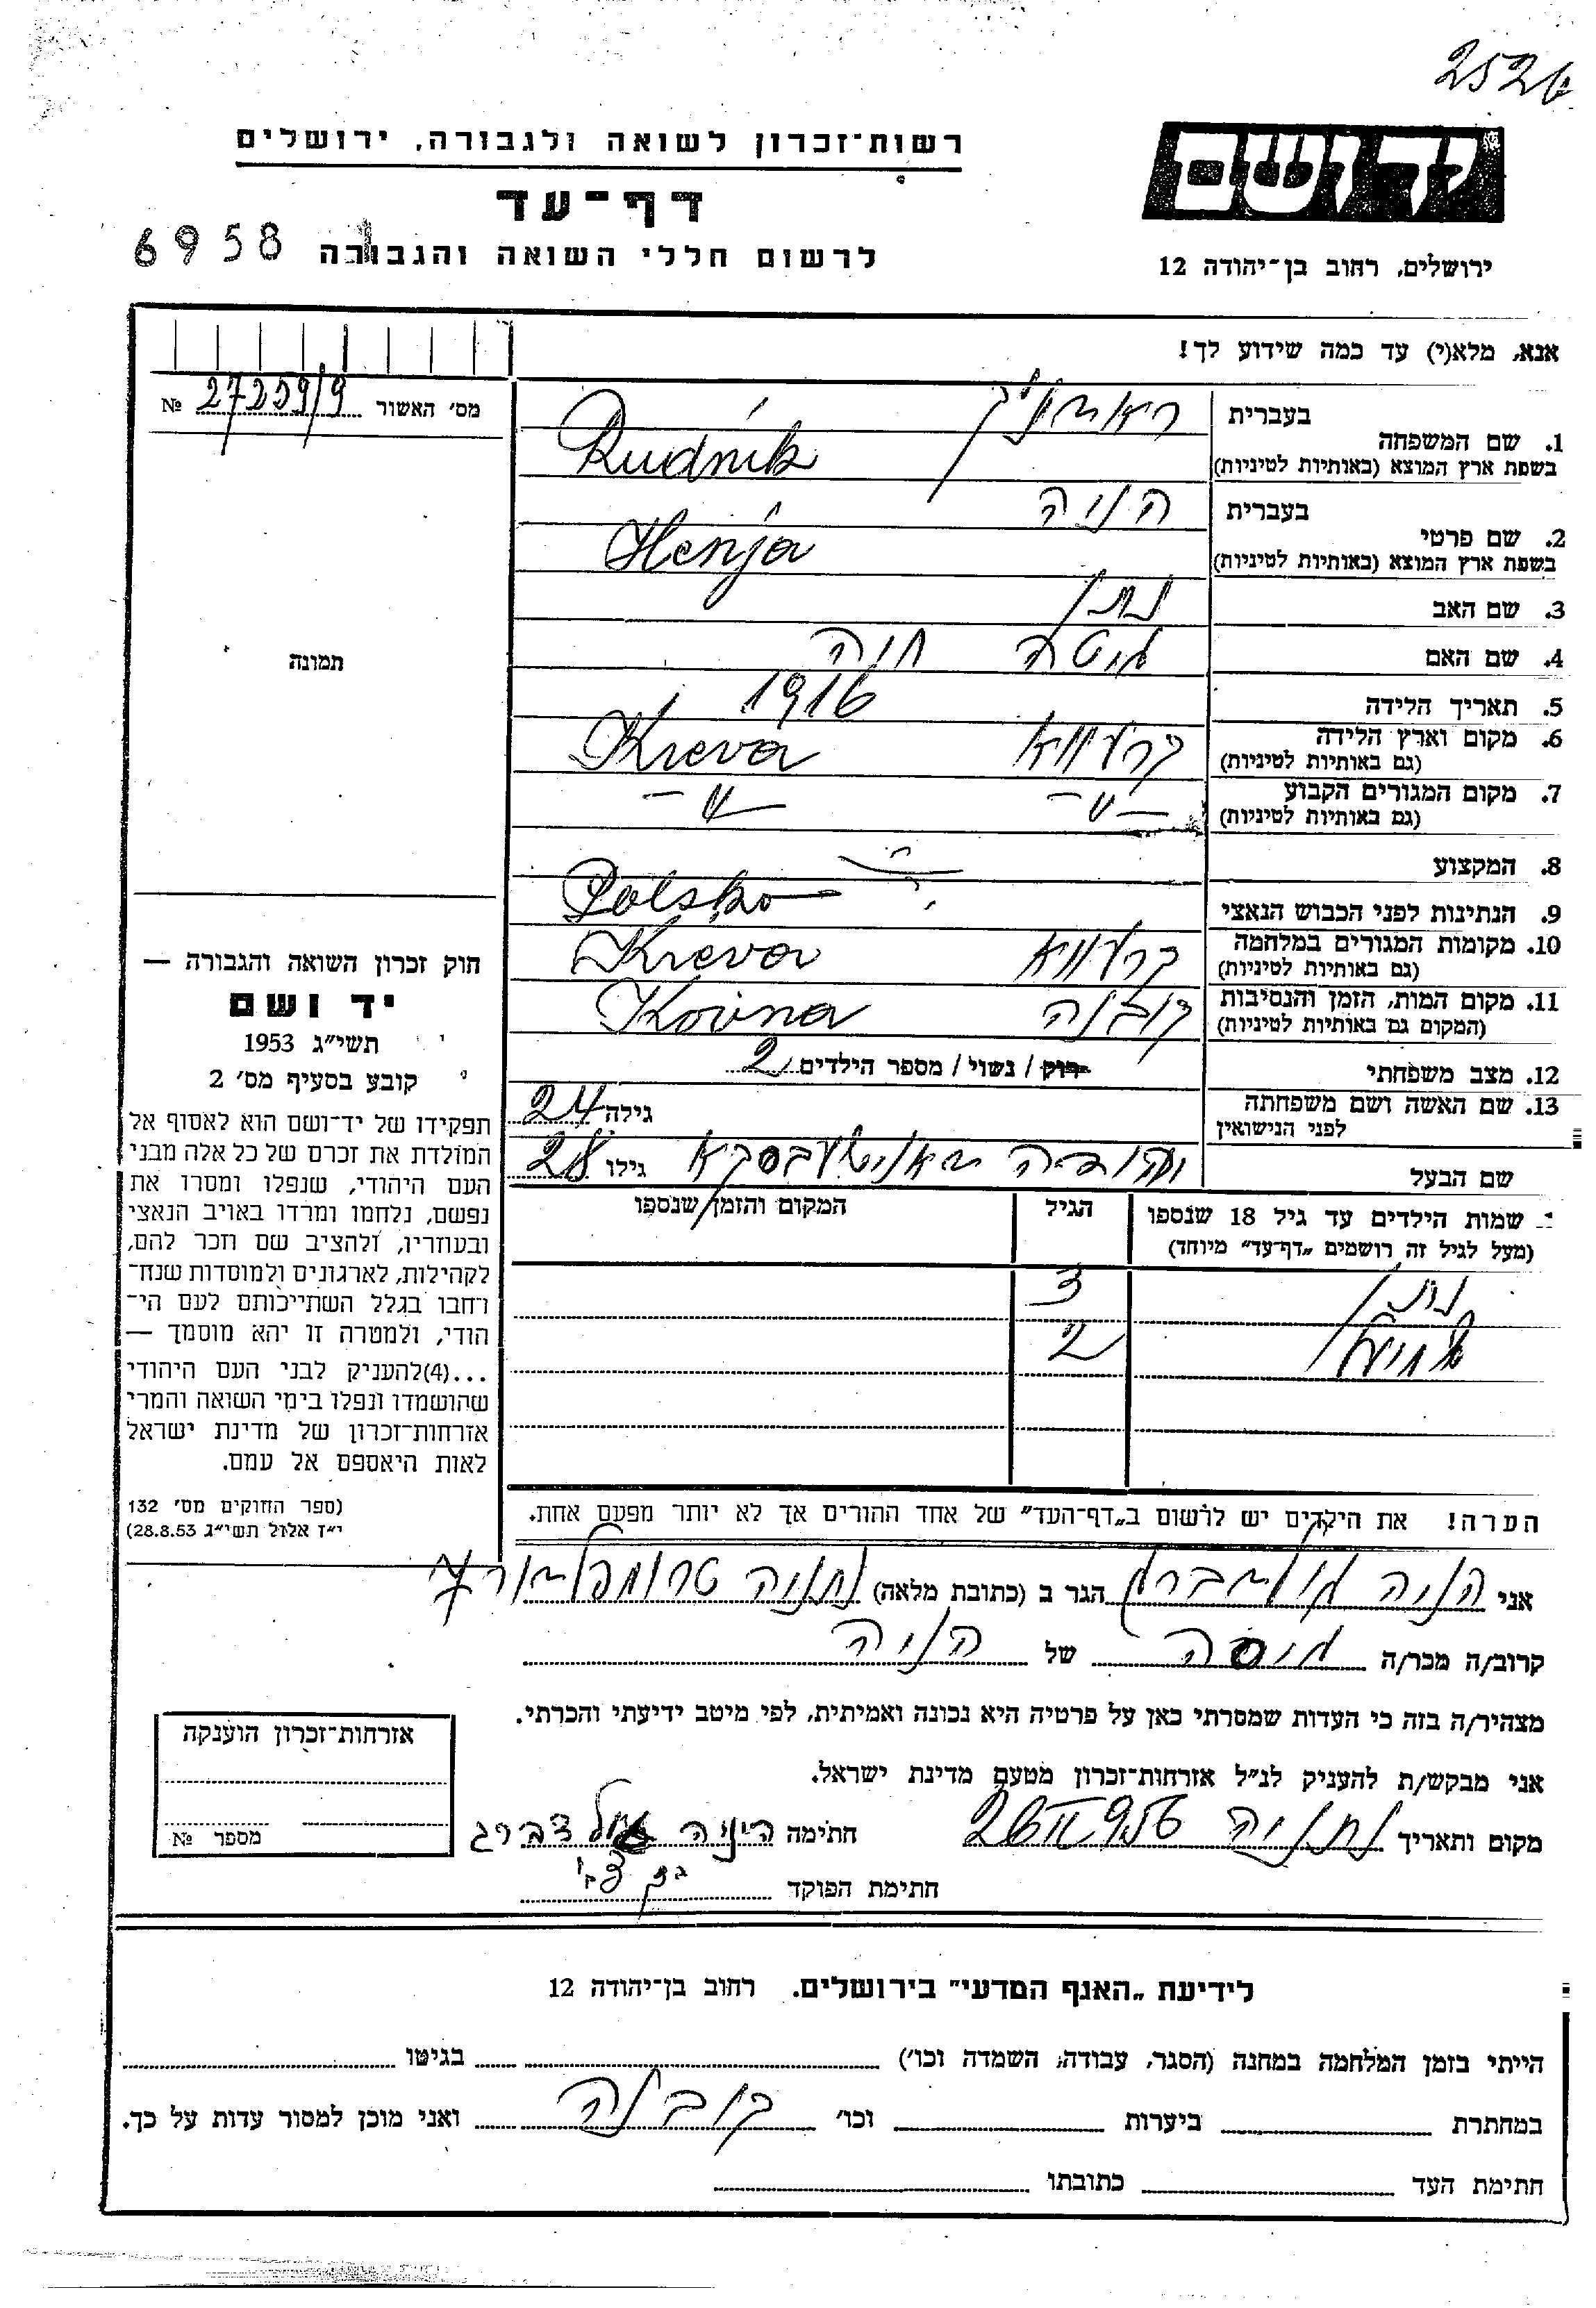 252
רשות־זכרון לשואה ולגבורה, ירושלים
יד ושם
דף־עד
ירושלים, רחוב בן־יהודה 12
לרשום חללי השואה והגבורה
6958
אנא, מלא(י) עד כמה שידוע לך!
מס׳ האשור 27259/9 №
תמונה
1. שם המשפחה
בעברית
בשפת ארץ המוצא (באותיות לטיניות) Rudnik
2. שם פרטי
בעברית הניה
בשפת ארץ המוצא (באותיות לטיניות) Henja
3. שם האב נתן
4. שם האם גיטה חיה
5. תאריך הלידה 1916
6. מקום וארץ הלידה קרעווא Kreva
(גם באותיות לטיניות)
7. מקום המגורים הקבוע —״— —״—
(גם באותיות לטיניות)
8. המקצוע
9. הנתינות לפני הכבוש הנאצי Polsko
10. מקומות המגורים במלחמה קרעווא Kreva
(גם באותיות לטיניות)
11. מקום המות, הזמן והנסיבות קובנה Kovna
(המקום גם באותיות לטיניות)
12. מצב משפחתי רוק / נשוי / מספר הילדים 2
13. שם האשה ושם משפחתה
לפני הנישואין
גילה 24
שם הבעל יהודה גילו 28
שמות הילדים עד גיל 18 שנספו
(מעל לגיל זה רושמים „דף־עד״ מיוחד)
הגיל
המקום והזמן שנספו
נתן 3
2
הערה! את הילדים יש לרשום ב„דף־העד״ של אחד ההורים אך לא יותר מפעם אחת.
חוק זכרון השואה והגבורה —
יד ושם
תשי״ג 1953
קובע בסעיף מס׳ 2
תפקידו של יד־ושם הוא לאסוף אל
המולדת את זכרם של כל אלה מבני
העם היהודי, שנפלו ומסרו את
נפשם, נלחמו ומרדו באויב הנאצי
ובעוזריו, ולהציב שם וזכר להם,
לקהילות, לארגונים ולמוסדות שנח־
רחבו בגלל השתייכותם לעם הי־
הודי, ולמטרה זו יהא מוסמך —
...(4)להעניק לבני העם היהודי
שהושמדו ונפלו בימי השואה והמרי
אזרחות־זכרון של מדינת ישראל
לאות היאספם אל עמם.
(ספר החוקים מס׳ 132
י״ז אלול תשי״ג 28.8.53)
אני הניה גולדברג הגר ב (כתובת מלאה) נתניה טרומפלדור
קרוב/ה מכר/ה גיסה של הניה
מצהיר/ה בזה כי העדות שמסרתי כאן על פרטיה היא נכונה ואמיתית, לפי מיטב ידיעתי והכרתי.
אני מבקש/ת להעניק לנ״ל אזרחות־זכרון מטעם מדינת ישראל.
מקום ותאריך נתניה 26 II 956 חתימה הינה גולדברג
חתימת הפוקד
אזרחות־זכרון הוענקה
מספר №
לידיעת „האנף המדעי״ בירושלים. רחוב בן־יהודה 12
הייתי בזמן המלחמה במחנה (הסגר, עבודה, השמדה וכו׳) בגיטו
במחתרת ביערות וכו׳ קובנה ואני מוכן למסור עדות על כך.
חתימת העד כתובתו